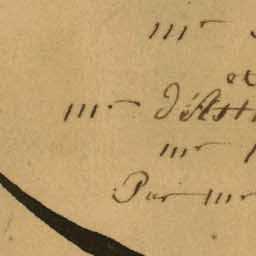 mr
et
mr d'Ast
mr
Par mr